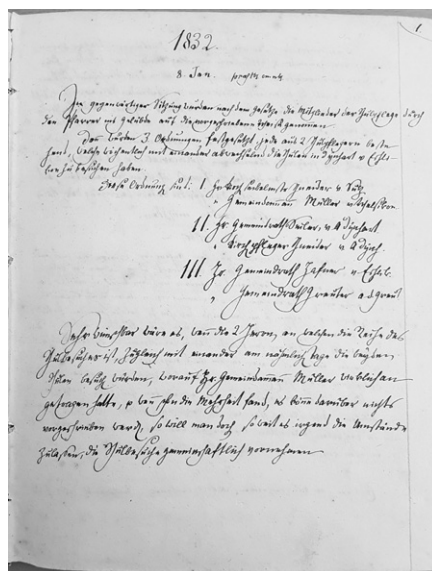 1832.
8. Jan.
In gegenwärtiger Sitzung wurden nach dem Gesetze die Mitglieder der Schulpflege durch
den Pfarrer ins Gelübde auf die vorgeschriebene Weise genommen.
Es wurden 3 Ordnungen festgesetzt, jede aus 2 Schulpflegern beste
hend, welche wöchentlich mit einander abwechselnd die Schulen in Dynhart u. Eschli
kon zu besuchen haben.
Diese Ordnung sind: I Hr. Greuter v.
" Gemeindammann Müller v.
II. Hr. Gemeindrath Seiler, v. Dynhart
" Kirchpfleger Greuter v.
III. Hr. Gemeindrath v. Eschlik.
" Gemeindrath Greuter a. d. Greut
Sehr wünschbar wäre es, wenn die 2 Herren, an welchen die Reihe des
Schulbesuches ist, zugleich mit einander am nähmlich Tage die beyden
Schulen besuch würden, worauf Hr. Gemeindammann Müller an
getragen hatte, die Mehrheit fand, es könne darüber nichts
vorgeschrieben werden, so will man doch so weit es irgend die Umstände
zulassen, die Schulbesuche gemeinschaftlich vornehmen